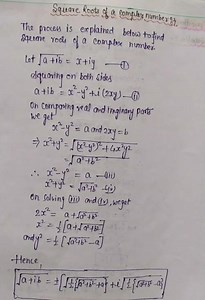 Square Roots of a complex number :-
The process is explained below to find
Square roots of a complex number
Let √a+ib = x+iy —(I)
Squaring on both sides
a+ib = x²-y²+i(2xy) —(II)
On comparing real and imaginary parts
we get
x²-y² = a and 2xy = b
⇒ x²+y² = √(x²-y²)²+4x²y²
= √a²+b²
∴ x²-y² = a —(III)
x²+y² = √a²+b² —(IV)
On solving (III) and (IV), we get
2x² = a+√a²+b²
x² = 1/2 [a+√a²+b²]
and y² = 1/2 [√a²+b² -a]
Hence,
√a+ib = ±[√1/2[√a²+b²+a] + i√1/2[√a²+b²-a]]